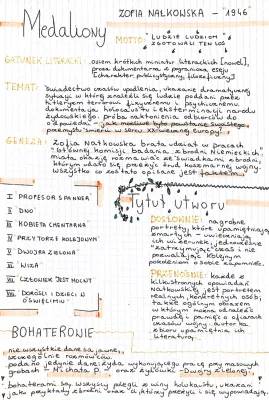 Medaliony
ZOFIA NAŁKOWSKA - "1946"
MOTTO: "LUDZIE LUDZIOM
ZGOTOWALI TEN LOS"
GATUNEK LITERACKI: osiem krótkich miniatur literackich (nowel),
proza dokumentarna z pogranicza, eseju
(charakter publicystyczny, filozoficzny)
TEMAT: świadectwo czasów upodlenia, ukazanie dramatycznej
sytuacji w której znaleźli się ludzie poddani przez
hitleryzm terrorowi fizycznemu i psychicznemu
dokumentacja holocaustu i eksterminacji narodu
żydowskiego, próba nakłonienia odbiorców do
odpowiedzi jak możliwe było powstanie swoistego
przemysłu śmierci w sercu XX-wiecznej Europy
GENEZA: Zofia Nałkowska brała udział w pracach
"Głównej komisji badania zbrodni Niemieckich".
miała okazję rozmawiać ze świadkami zbrodni,
którym udało się przeżyć trud koszmarnej wojny.
wszystko co zostało opisane jest faktem.
I PROFESOR SPANNER
II DNO
III KOBIETA CMENTARNA
IV PRZY TORZE KOLEJOWYM
V DWOJRA ZIELONA
VI WIZA
VII CZŁOWIEK JEST MOCNY
VIII DOROŚLI I DZIECI W
OŚWIĘCIMIU
Tytuł utworu
DOSŁOWNIE: nagrobne
portrety, które upamiętniają
zmarłych - uwieczniają
ich wizerunek, jednocześnie
zatrzymując czas i nie
pozwalając kolejnym
pokoleniom o sobie zapomnieć.
PRZENOŚNIE: każde z
kilkustronnych opowiadań
Nałkowskiej jest portretem
realnych, konkretnych osób,
także ogólnym obrazem
w którym można odnaleźć
prawdę i pamięć o ofiarach
czasów wojny. autorka
zbioru upamiętnia ich
literaturą.
BOHATEROWIE
nie wszystkie dane są jawne,
szczególnie rozmówców
podano jedynie dane żyda wykonującego pracę przy masowych
grobach - Michała P. oraz żydówki - Dwojry Zielonej.
bohaterami są wszyscy polegli z winy holokaustu, ukazani
jako przykłady zbrodni oraz ci którzy przeżyli i się wypowiadają.